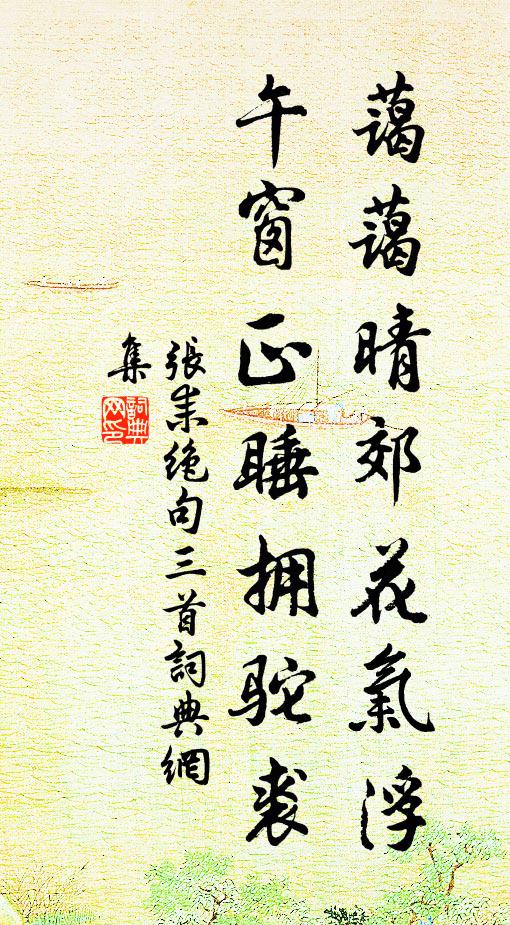 藹藹晴郊花氣浮
午窗正睡拥駝裘
張耒絶句三首詞典網
集
詞典网印